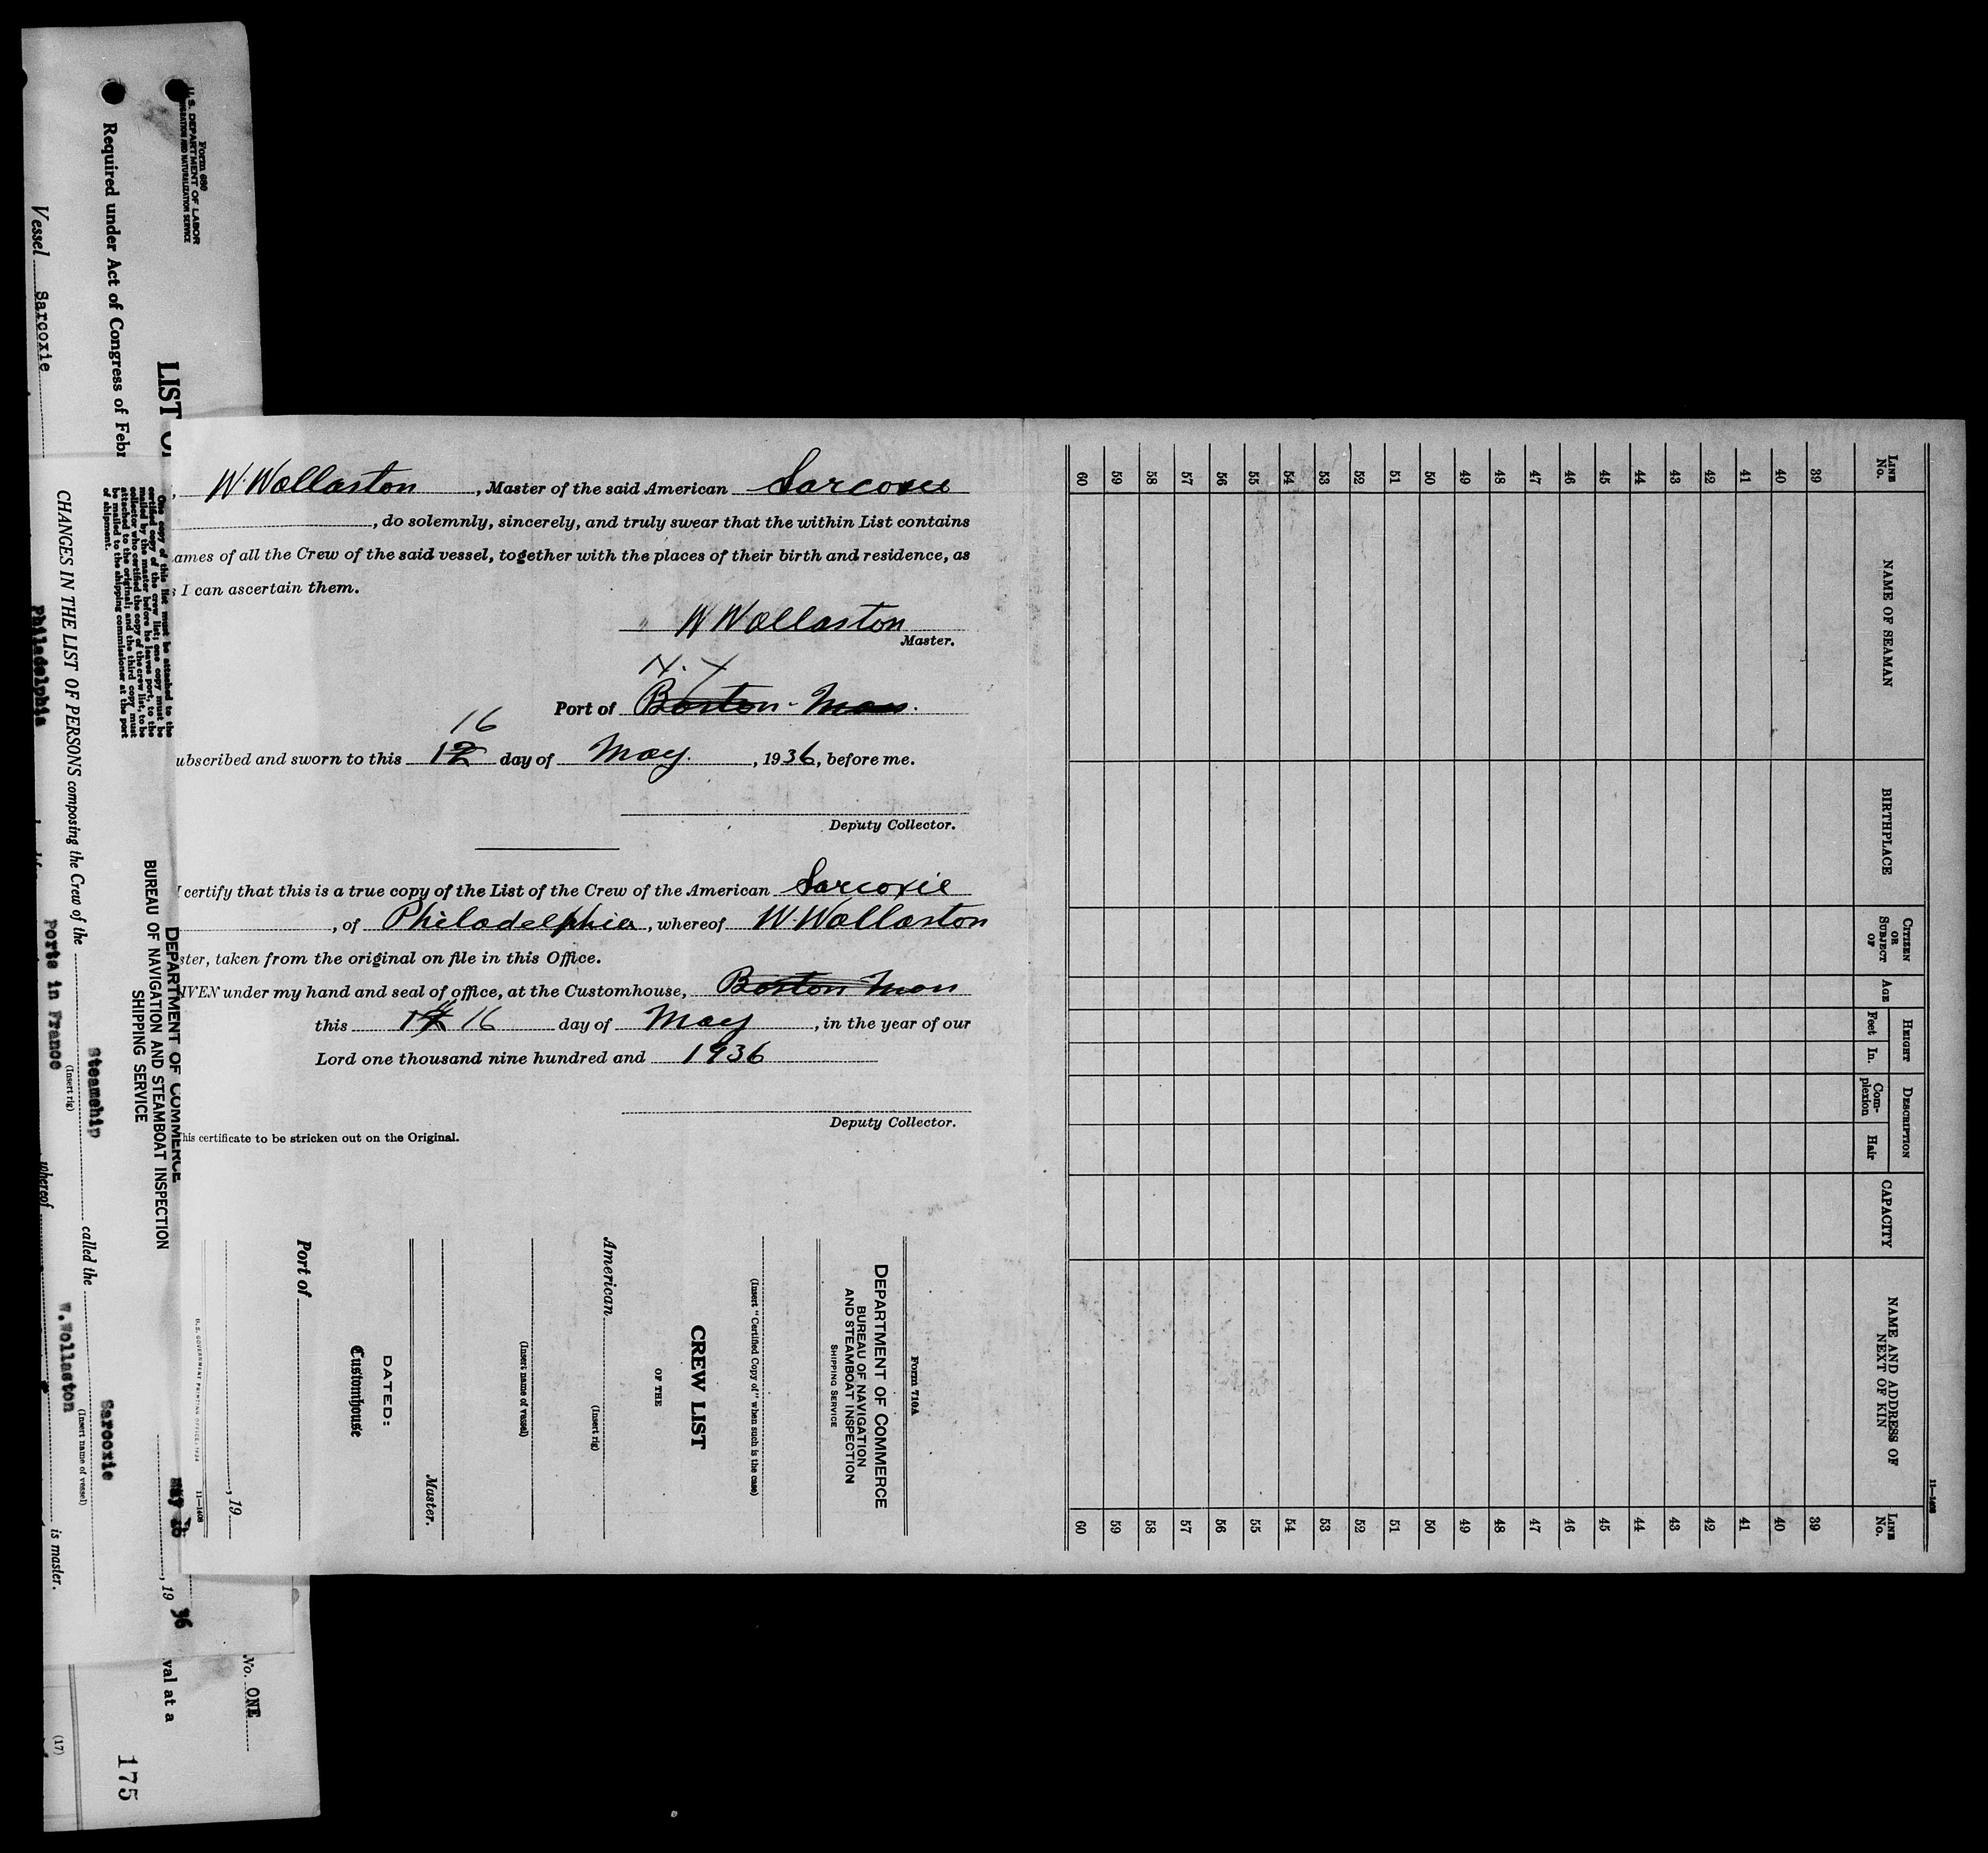 Form 680
U. S. DEPARTMENT OF LABOR
IMMIGRATION AND NATURALIZATION SERVICE
LIST O
Required under Act of Congress of Febr
Vessel Sarcoxie
One copy of this list must be attached to the
certified copy of the crew list; one copy must be
mailed by the master before he leaves port, to the
collector who certified the copy of the crew list, to be
attached to the original; and the third copy must
be mailed to the shipping commissioner at the port
of shipment.
DEPARTMENT OF COMMERCE
BUREAU OF NAVIGATION AND STEAMBOAT INSPECTION
SHIPPING SERVICE
May 16, 1936
CHANGES IN THE LIST OF PERSONS composing the Crew of the Steamship called the Sarcoxie
(Insert rig) (Insert name of vessel)
Philadelphia
Ports in France
whereof W. Wollaston is master.
val at a
No. ONE
175
(17)
, W. Wollaston, Master of the said American Sarcoxie
, do solemnly, sincerely, and truly swear that the within List contains
ames of all the Crew of the said vessel, together with the places of their birth and residence, as
s I can ascertain them.
W Wollaston
Master.
N. Y
Port of Boston - Mass.
16
ubscribed and sworn to this 12 day of May., 1936, before me.
Deputy Collector.
I certify that this is a true copy of the List of the Crew of the American Sarcoxie
, of Philadelphia, whereof W. Wollaston
ster, taken from the original on file in this Office.
IVEN under my hand and seal of office, at the Customhouse, Boston Mass
this 16 day of May, in the year of our
Lord one thousand nine hundred and 1936
Deputy Collector.
his certificate to be stricken out on the Original.
Form 710A
DEPARTMENT OF COMMERCE
BUREAU OF NAVIGATION
AND STEAMBOAT INSPECTION
SHIPPING SERVICE
(Insert "Certified Copy of" when such is the case)
CREW LIST
OF THE
American
(Insert rig)
(Insert name of vessel)
Master.
DATED:
Customhouse
Port of
, 19
U.S. GOVERNMENT PRINTING OFFICE
11—1408
LINE No.
NAME OF SEAMAN
BIRTHPLACE
CITIZEN OR SUBJECT OF
AGE
HEIGHT
Feet In.
DESCRIPTION
Complexion Hair
CAPACITY
NAME AND ADDRESS OF NEXT OF KIN
LINE No.
11—1408
39 39
40 40
41 41
42 42
43 43
44 44
45 45
46 46
47 47
48 48
49 49
50 50
51 51
52 52
53 53
54 54
55 55
56 56
57 57
58 58
59 59
60 60